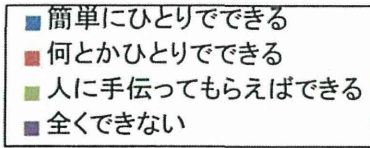 簡単にひとりでできる
何とかひとりでできる
人に手伝ってもらえばできる
全くできない